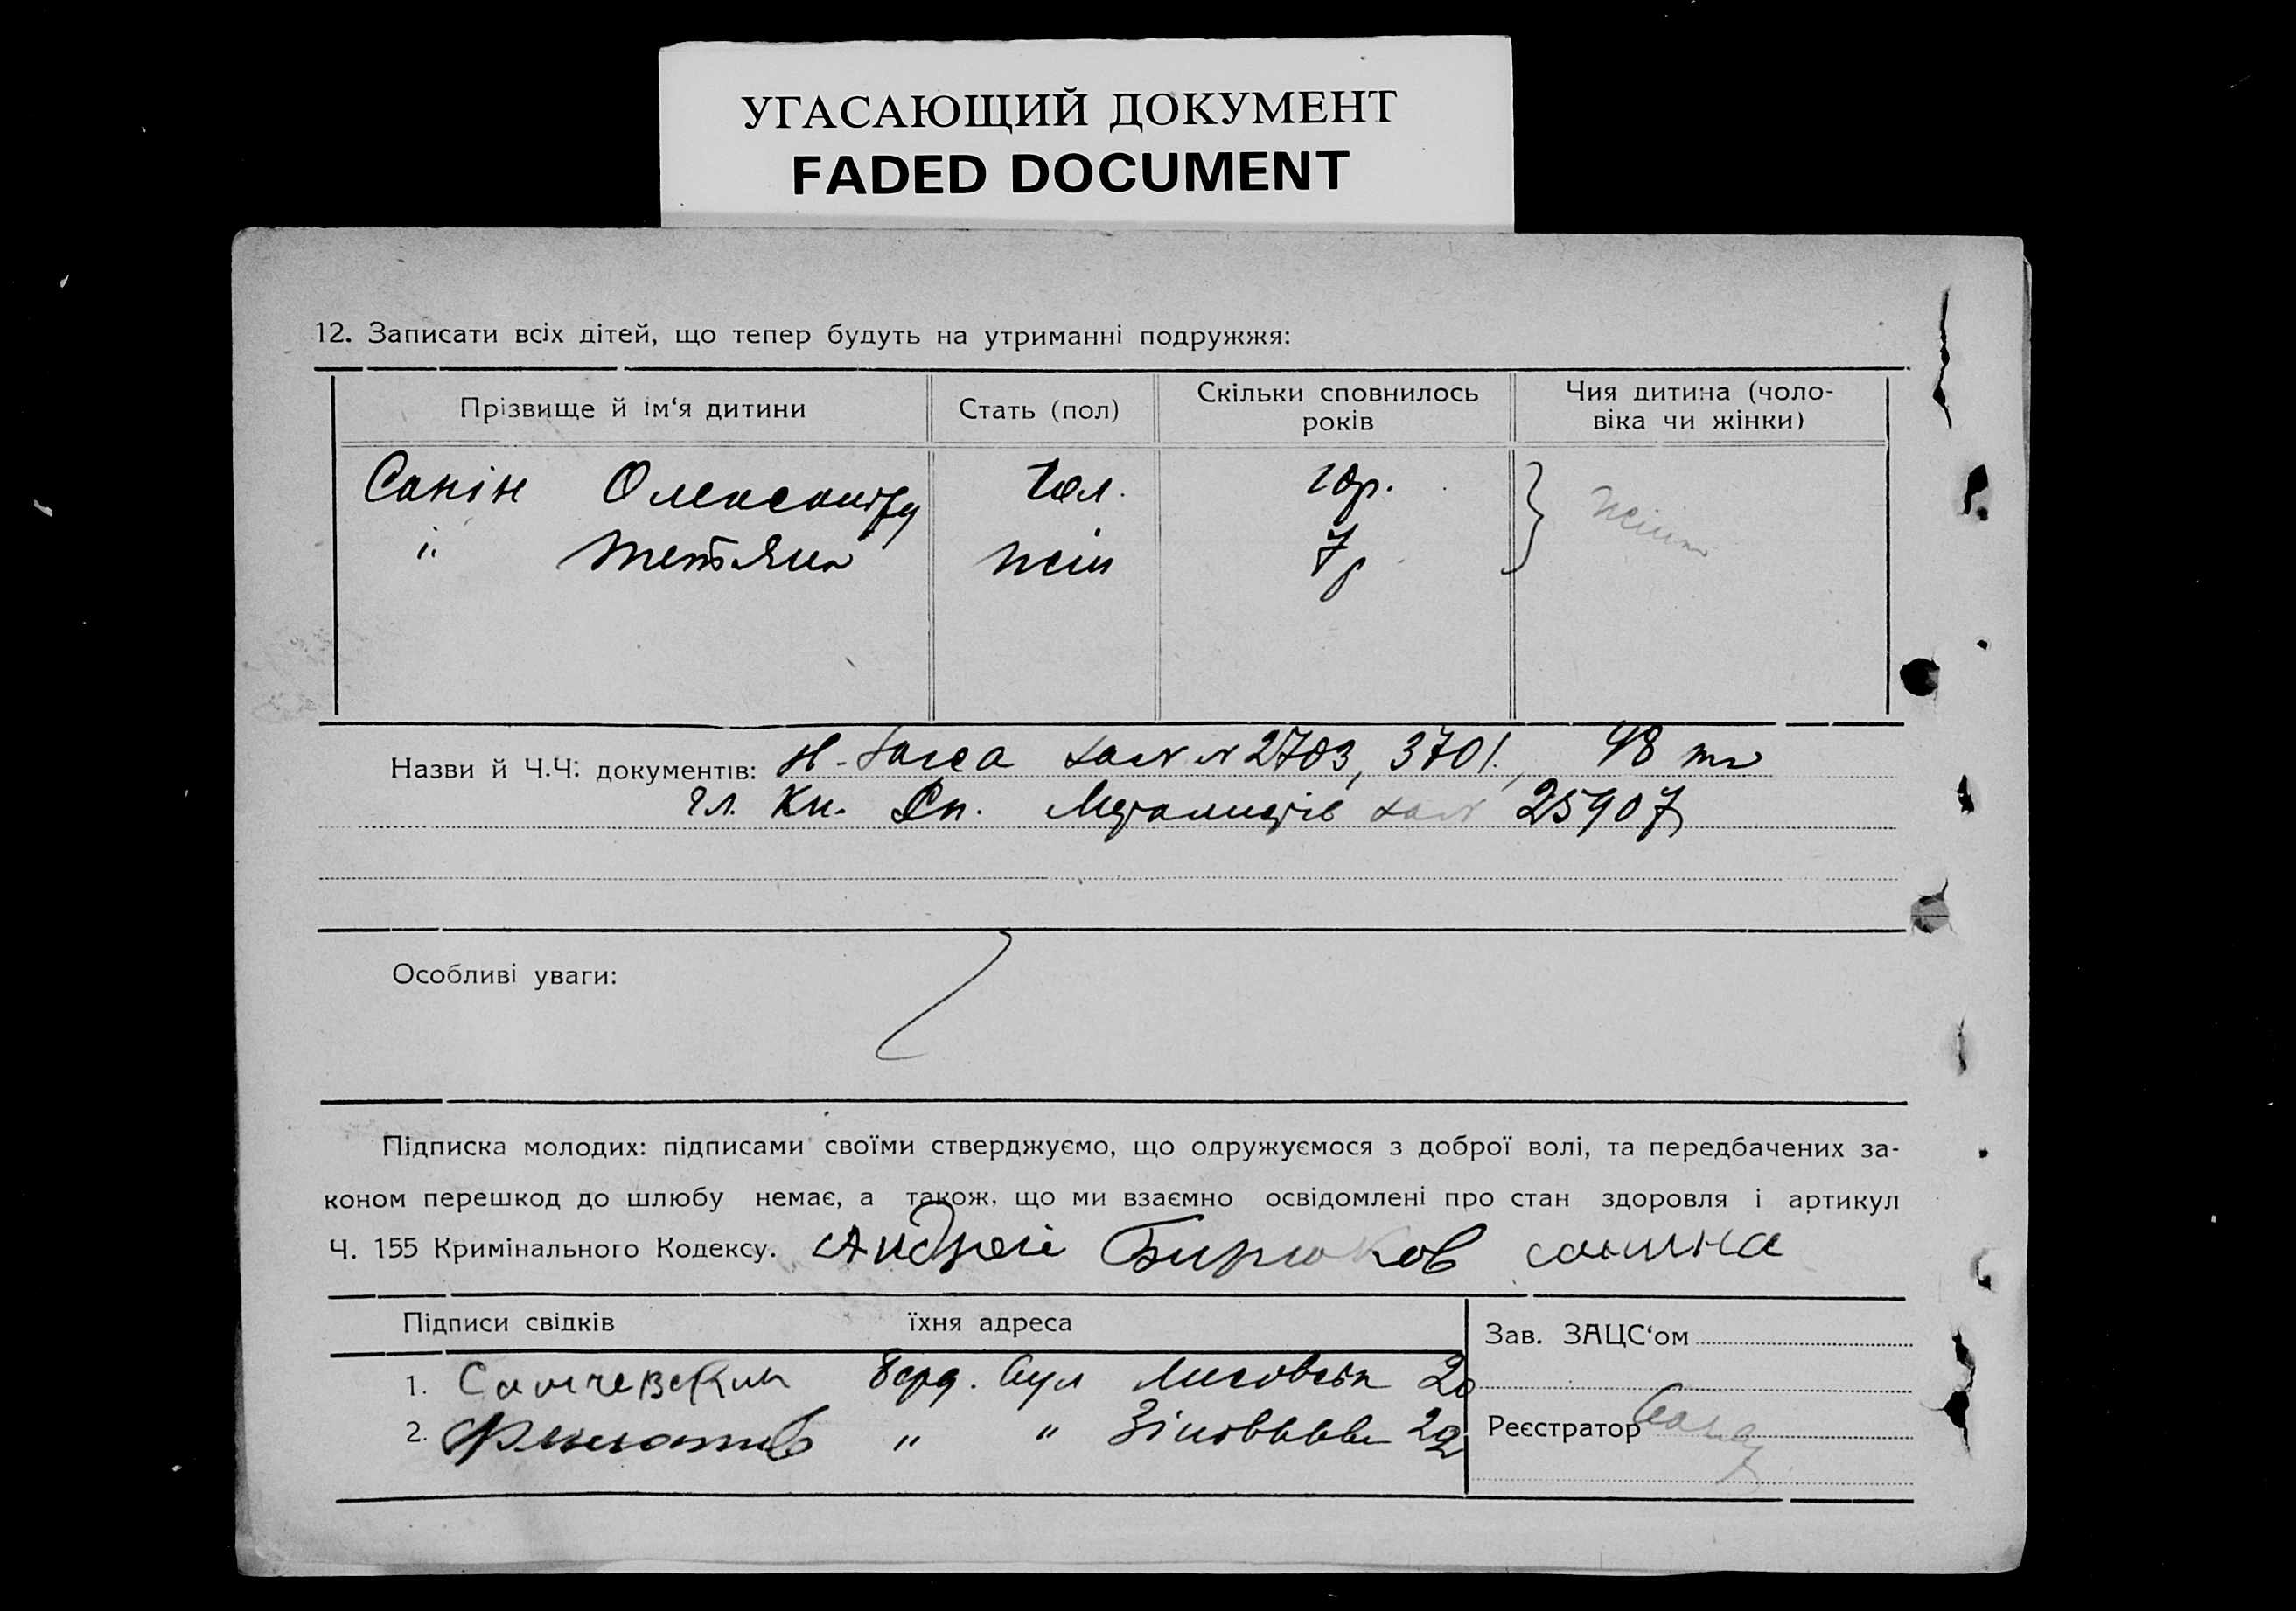 УГАСАЮЩИЙ ДОКУМЕНТ
FADED DOCUMENT
12. Записати всіх дітей, що тепер будуть на утриманні подружжя:
Прізвище й ім‘я дитини Стать (пол) Скільки сповнилось років Чия дитина (чоловіка чи жінки)
Санін Олександр чол. 10р.
" Тетяна жін 7р
Назви й Ч.Ч. документів: 2703, 3701, 48
Кн. Сп. Металистів 25907
Особливі уваги:
Підписка молодих: підписами своїми стверджуємо, що одружуємося з доброї волі, та передбачених за-
коном перешкод до шлюбу немає, а також, що ми взаємно освідомлені про стан здоровля і артикул
Ч. 155 Кримінального Кодексу. Андрей Бирюков Санина
Підписи свідків їхня адреса
Зав. ЗАЦС‘ом
1. вул 20
2. " " 22
Реєстратор